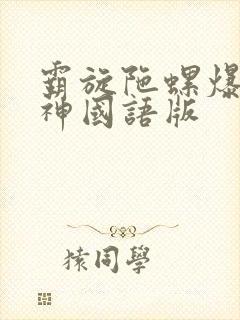 霸旋陀螺爆
神國語版
猿同學